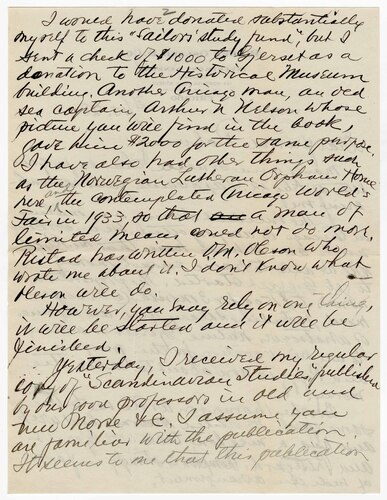 2
I would have donated substantially
myself to this "Sailors' study fund", but I
sent a check of $1000 to Gjerset as a
donation to the Historical Museum
building. Another Chicago man, an old
sea captain, Arthur N. Nelson whose
picture you will find in the book,
gave him $2000 for the same purpose.
I have also had other things such
as the Norwegian Lutheran Orphans Home
here, and the contemplated Chicago World's
Fair in 1933, so that a man of
limited means could not do more.
Ristad has written O.M. Oleson who
wrote me about it. I don't know what
Oleson will do.
However, you may rely on one thing,
it will be started and it will be
finished.
Yesterday, I received my regular
copy of "Scandinavian Studies" published
by our good professors in old and
new Norse &c. I assume you
are familiar with the publication.
It seems to me that this publication